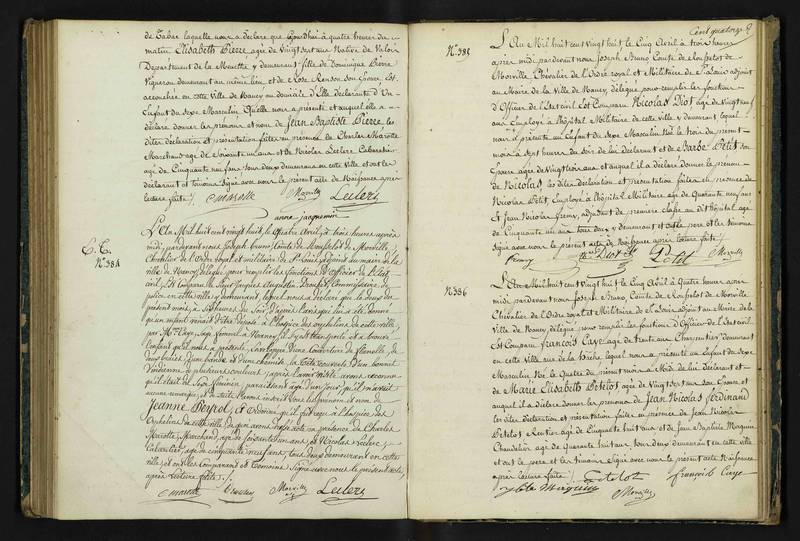 de Tabac laquelle nous a déclaré que aujourd'hui à quatre heures du
matin Elisabeth Pierre agée de Vingt sept ans Native de
Département de la Meurthe y demeurant fille de Dominique Pierre
Vigneron demeurant au même lieu et de Rose son Epouse, Est
accouchée en cette Ville de Nancy au domicile d'Elle déclarante d'Un
Enfant du Sexe Masculin Qu'elle nous a présenté et auquel elle a
déclaré donner les prénoms et nom de Jean Baptiste Pierre les
dites déclaration et présentation faites en présence de Charles Marotte
Marchand agé de Soixante un ans et de Nicolas Leclerc Cabaretier
agé de Cinquante neuf ans tous deux demeurans en cette Ville et ont le
déclarant et témoins Signé avec nous le présent acte de Naissance après
lecture faite
C marotte Morville Leclerc
anne jacquemin
E. T.
N°. 384
L'An Mil huit cent vingt huit, le Quatre Avril, à trois heures après
midi, pardevant nous Joseph Bruno, Comte de Rousselot de Morville,
Chevalier de l'Ordre royal et militaire de St Louis, adjoint au maire de la
ville de Nancy, délégué pour remplir les fonctions d'Officier de l'Etat
civil, Est Comparu le Sieur Jacques Augustin Commissaire de
police en cette ville y demeurant, lequel nous a déclaré que le deux du
présent mois, à Six heures du Soir, d'après l'avis qui lui a été donné
qu'un enfant venait d'être déposé à l'hospice des orphelins de cette ville,
par Sage femme à Nancy, il s'y est transporté et a trouvé
l'enfant qu'il nous a présenté, enveloppé d'une Couverture de flanelle, de
deux langes, d'une bande et d'une chemise, la tête couverte d'un bonnet
d'indienne de plusieurs couleurs, après l'avoir visité avons reconnu
qu'il était du sexe féminin, paraissant agé d'un jour, qu'il n'avait
aucune remarque, et de suite l'avons inscrit sous les prénoms et nom de
Jeanne Beyrol, et ordonné qu'il fût reçu à l'hospice des
Orphelins de cette ville, de quoi avons dressé acte en présence de Charles
Mariotte, Marchand, agé de Soixante un ans, et Nicolas Leclerc,
Cabaretier, agé de cinquante neuf ans, tous deux demeurant en cette
ville, et ont les Comparant et témoins Signé avec nous le présent acte,
après lecture faite.
C marotte Morville Leclerc
Cent quatorze
N°. 385
L'An Mil huit cent vingt huit le Cinq Avril à trois heures
après midi pardevant nous Joseph Bruno Comte de Rousselot de
Morville Chevalier de l'Ordre royal et Militaire de St Louis adjoint
au Maire de la Ville de Nancy, délégué pour remplir les fonctions
d'Officier de l'Etat civil Est Comparu Nicolas Diot agé de Vingt neuf
ans Employé à l'hôpital Militaire de cette Ville y demeurant lequel
nous a présenté un Enfant du Sexe Masculin Né le trois du présent
mois à Sept heures du Soir de lui déclarant et de Barbe Petit son
Epouse agée de Vingt trois ans et auquel il a déclaré donner le prénom
de Nicolas, les dites déclaration et présentation faites en présence de
Nicolas Petit, Employé à l'hôpital Militaire agé de Quarante neuf ans
Et Jean Nicolas adjudant de première classe au dit hôpital agé
de Cinquante un ans tous deux y demeurant et ont le père et les témoins
Signé avec nous le présent acte de Naissance après lecture faite
Diot Petit Morville
N°. 386
L'An Mil huit cent Vingt huit le Cinq Avril à Quatre heures après
midi pardevant nous Joseph Bruno, Comte de Rousselot de Morville
Chevalier de l'Ordre royal et Militaire de St Louis adjoint au Maire de la
Ville de Nancy délégué pour remplir les fonctions d'Officier de l'Etat civil
Est Comparu françois Caye agé de trente ans Charpentier demeurant
en cette ville rue de la lequel nous a présenté un Enfant du Sexe
Masculin Né le Quatre du présent mois à Midi de lui déclarant et
de Marie Elisabeth Petelot agée de Vingt sept ans Son Epouse et
auquel il a déclaré donner les prénoms de Jean Nicolas ferdinand
les dites déclaration et présentation faites en présence de Jean Nicolas
Petelot Rentier agé de Cinquante huit ans et de Jean Baptiste
Chandelier agé de Quarante huit ans tous deux demeurant en cette ville
et ont le père et les témoins Signé avec nous le présent acte de Naissance
après lecture faite
Petelot françois Caye
Morville